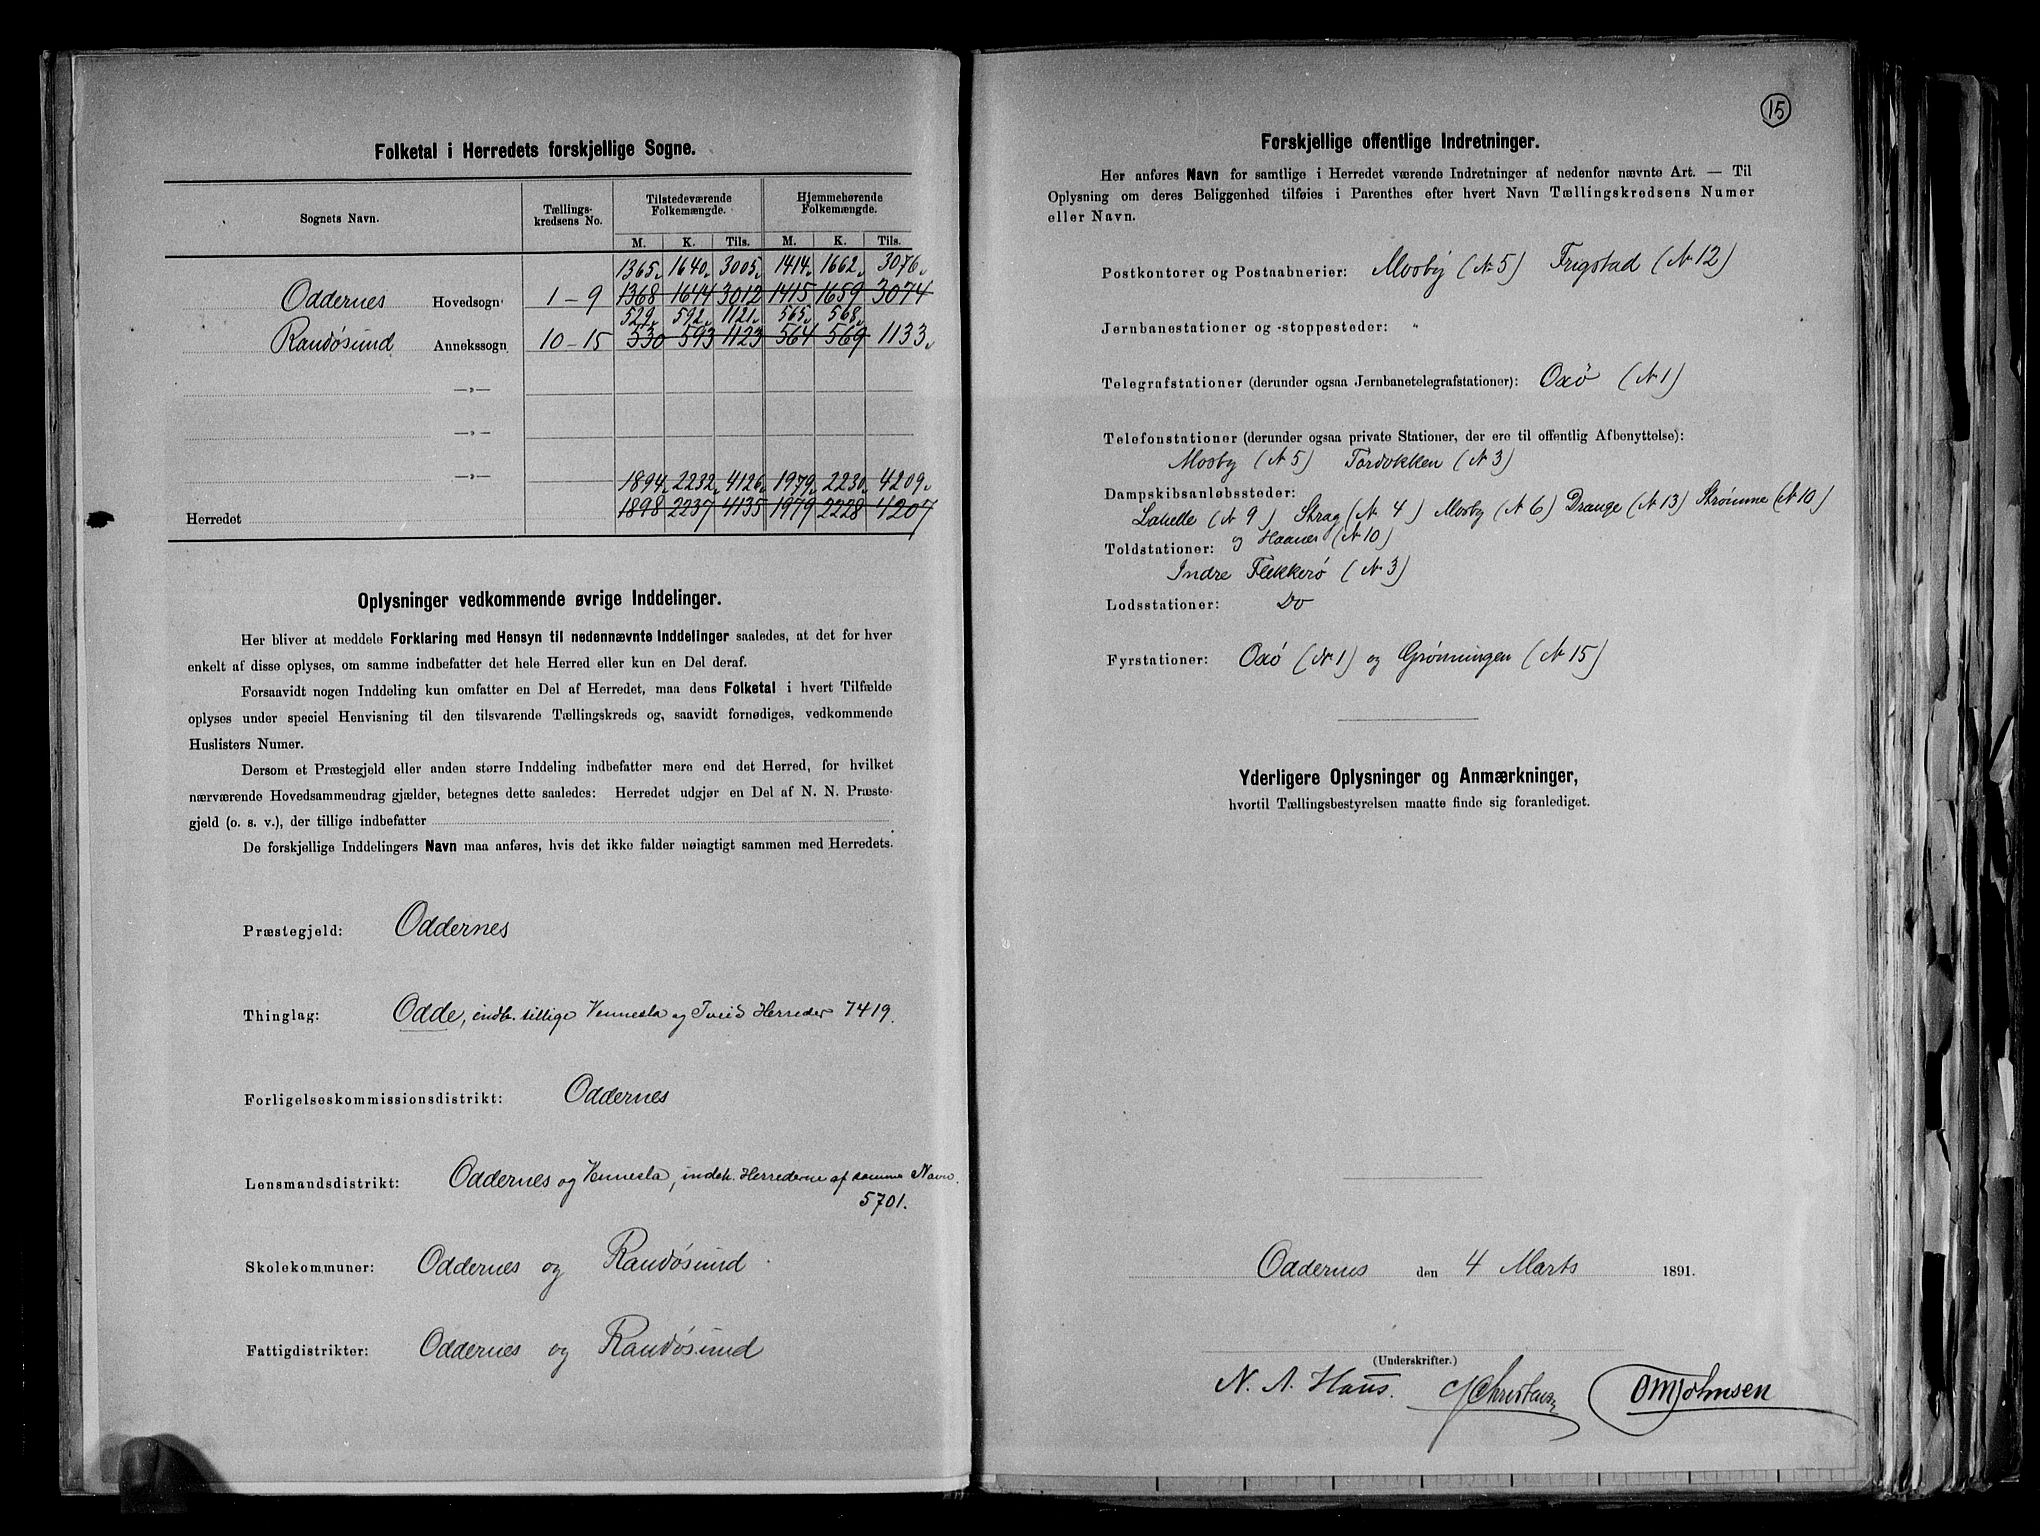 Folketal i Herredets forskjellige Sogne.
Sognets Navn. Tællings-kredsens No. Tilstedeværende Folkemængde. Hjemmehørende Folkemængde.
M. K. Tils. M. K. Tils.
1365 1640 3005 1414 1662 3076
Oddernes Hovedsogn 1-9 1368 1644 3012 1415 1659 3074
529 592 1121 565 568
Randøsund Annekssogn 10-15 530 593 1123 564 569 1133
—»—
—»—
—»—
1894 2232 4126 1979 2230 4209
Herredet 1898 2237 4135 1979 2228 4207
Oplysninger vedkommende øvrige Inddelinger.
Her bliver at meddele Forklaring med Hensyn til nedennævnte Inddelinger saaledes, at det for hver
enkelt af disse oplyses, om samme indbefatter det hele Herred eller kun en Del deraf.
Forsaavidt nogen Inddeling kun omfatter en Del af Herredet, maa dens Folketal i hvert Tilfælde
oplyses under speciel Henvisning til den tilsvarende Tællingskreds og, saavidt fornødiges, vedkommende
Huslisters Numer.
Dersom et Præstegjeld eller anden større Inddeling indbefatter mere end det Herred, for hvilket
nærværende Hovedsammendrag gjælder, betegnes dette saaledes: Herredet udgjør en Del af N. N. Præste-
gjeld (o. s. v.), der tillige indbefatter
De forskjellige Inddelingers Navn maa anføres, hvis det ikke falder nøiagtigt sammen med Herredets.
Præstegjeld: Oddernes
Thinglag: Odde, indb. tillige Vennesla og Tveid Herreder 7419.
Forligelseskommissionsdistrikt: Oddernes
Lensmandsdistrikt: Oddernes og Vennesla, indeh. Herrederne af samme Navn.
5701.
Skolekommuner: Oddernes og Randøsund
Fattigdistrikter: Oddernes og Randøsund
15
Forskjellige offentlige Indretninger.
Her anføres Navn for samtlige i Herredet værende Indretninger af nedenfor nævnte Art. — Til
Oplysning om deres Beliggenhed tilføies i Parenthes efter hvert Navn Tællingskredsens Numer
eller Navn.
Postkontorer og Postaabnerier: Mosby (N 5) Frigstad (N 12)
Jernbanestationer og -stoppesteder: "
Telegrafstationer (derunder ogsaa Jernbanetelegrafstationer): Oxø (N 1)
Telefonstationer (derunder ogsaa private Stationer, der ere til offentlig Afbenyttelse):
Mosby (N 5) Tordokken (N 3)
Dampskibsanløbssteder:
Lahelle (N 9) Strag (N 4) Mosby (N 6) Drange (N 13) Strømme (N 10)
og Haanes (N 10)
Toldstationer:
Indre Flekkerø (N 3)
Lodsstationer: Do
Fyrstationer: Oxø (N 1) og Grønningen (N 15)
Yderligere Oplysninger og Anmærkninger,
hvortil Tællingsbestyrelsen maatte finde sig foranlediget.
Oddernes den 4 Marts 1891.
(Underskrifter.)
N. A. Haus. Christensen OMJohnsen